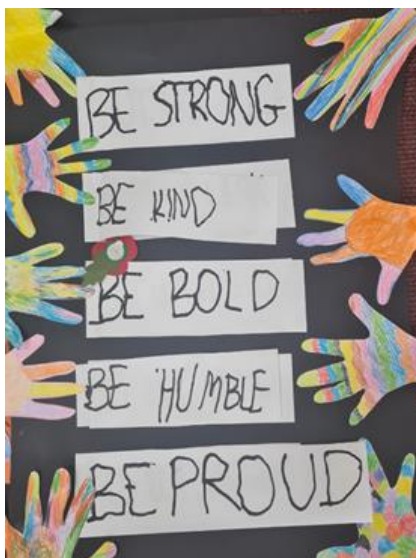 BE STRONG
BE KIND
BE BOLD
BE HUMBLE
BE PROUD